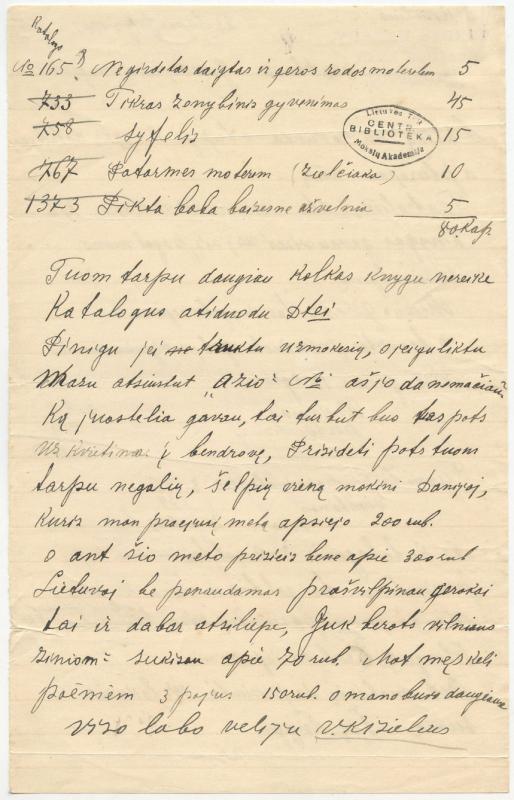 Katalogo
No 165 Negirdėtas daigtas ir geros rodos moterelem 5
733 Tikras zenybinis gyvenimas 45
758 syfelis 15
767 Patarmes moterem (Zielčiaka) 10
1373 Pikta boba baisesne už velnia 5
80 kap
Lietuvos TSR
CENTR.
BIBLIOTEKA
Mokslų Akademija
Tuom tarpu daugiau kolkas knygu nereike
Katalogus atiduodu Dtei
Pinigu jei truktu uzmokesių, o jeigu liktu
Mazu atsiustut "Azio" No ašjo da nemačiau
Ką juostelia gavau, tai turbut buo tas pots
uz kvietima į bendrovę, Prisideti pots tuom
tarpu negaliu, šelpių vieną mokini Danijoj,
kuris man praejusį metą apsiejo 200 rub.
o ant šio meto prizieis bene apie 300 rub
Lietuvoj be ponaudamas prašvilpinau gerokai
tai ir dabar atsiliepe, Juk berots vilniaus
ziniom sukisau apie 70 rub. Mat męs keli
poėmėm 3 pajus 150 rub. o mano buvo daugiausia
Viso labo velyju V. Kizielius